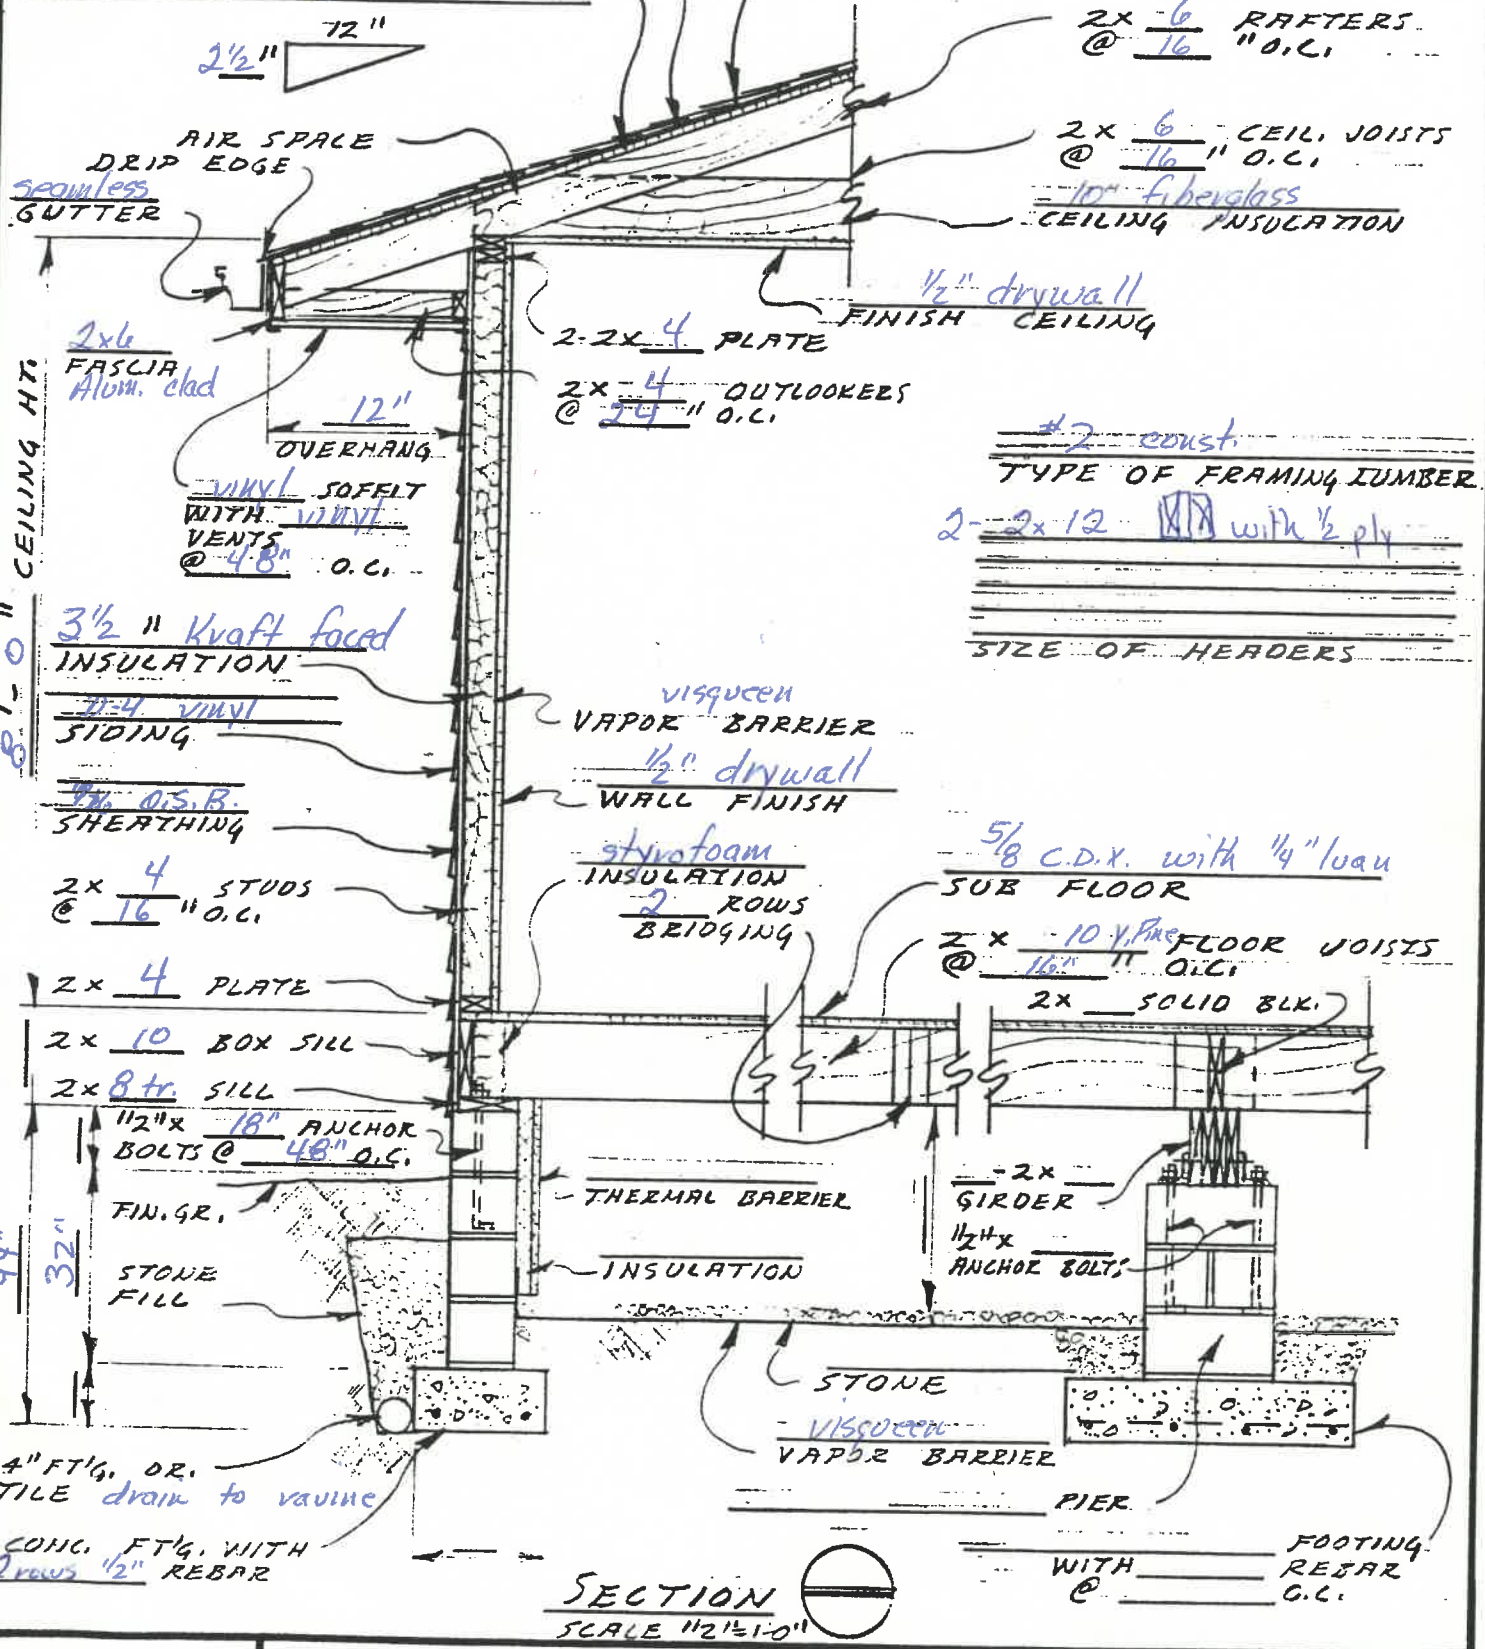 12"
2 1/2"
2x 6 RAFTERS
@ 16 "O.C.
AIR SPACE
DRIP EDGE
seamless
GUTTER
2x 6 CEIL. JOISTS
@ 16 " O.C.
10" fiberglass
CEILING INSULATION
1/2" drywall
FINISH CEILING
2x6
FASCIA
Alum. clad
2-2x 4 PLATE
2x 4 OUTLOOKERS
@ 24 " O.C.
12"
OVERHANG
vinyl SOFFIT
WITH vinyl
VENTS
@ 48" O.C.
#2 const.
TYPE OF FRAMING LUMBER
2- 2x12 with 1/2 ply
SIZE OF HEADERS
8'-0" CEILING HT.
3 1/2 " Kraft faced
INSULATION
D-4 vinyl
SIDING
O.S.B.
SHEATHING
2x 4 STUDS
@ 16 "O.C.
visqueen
VAPOR BARRIER
1/2" drywall
WALL FINISH
styrofoam
INSULATION
2 ROWS
BRIDGING
5/8 C.D.X. with 1/4" luan
SUB FLOOR
2 x 10 Y. Pine FLOOR JOISTS
@ 16" " O.C.
2x SOLID BLK.
2x 4 PLATE
2x 10 BOX SILL
2x 8 tr. SILL
1/2"x 18" ANCHOR
BOLTS @ 48" O.C.
FIN. GR.
32"
STONE
FILL
THERMAL BARRIER
INSULATION
-2x
GIRDER
1/2"x
ANCHOR BOLTS
STONE
visqueen
VAPOR BARRIER
4" FT'G. DR.
TILE drain to ravine
CONC. FT'G. WITH
2 rows 1/2" REBAR
PIER
FOOTING
WITH REBAR
@ O.C.
SECTION
SCALE 1/2"=1'-0"